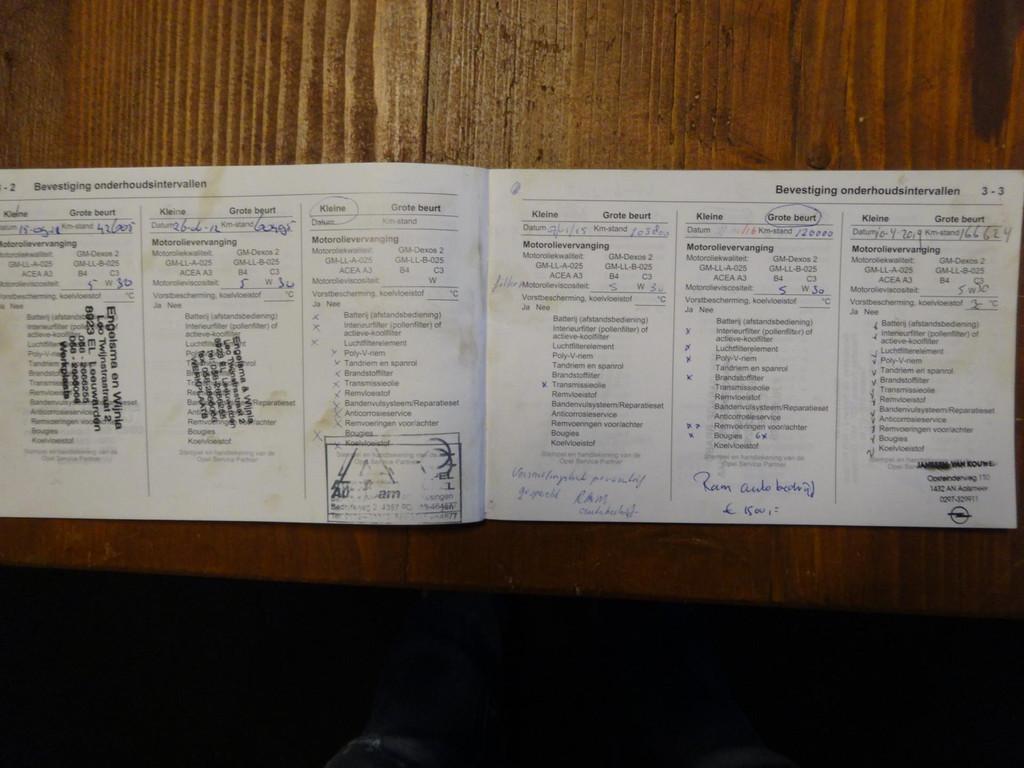 3 - 2 Bevestiging onderhoudsintervallen
Kleine Grote beurt
Datum Km-stand
Motorolievervanging
Motoroliekwaliteit: GM-Dexos 2
GM-LL-A-025 GM-LL-B-025
ACEA A3 B4 C3
Motorolieviscositeit: 5 W 30
Vorstbescherming, koelvloeistof °C
Ja Nee
Batterij (afstandsbediening)
Interieurfilter (pollenfilter) of
actieve-koolfilter
Luchtfilterelement
Poly-V-riem
Engelsma en Wijnia
8923 EL Leeuwarden
Werkplaats
Kleine Grote beurt
Datum Km-stand
Motorolievervanging
Motoroliekwaliteit: GM-Dexos 2
GM-LL-A-025 GM-LL-B-025
ACEA A3 B4 C3
Motorolieviscositeit: 5 W 30
Vorstbescherming, koelvloeistof °C
Ja Nee
Batterij (afstandsbediening)
Interieurfilter (pollenfilter) of
actieve-koolfilter
Bandenvulsysteem/Reparatieset
Anticorrosieservice
Remvoeringen voor/achter
Bougies
Koelvloeistof
Stempel en handtekening van de
Opel Service Partner
Kleine Grote beurt
Datum Km-stand
Motorolievervanging
Motoroliekwaliteit: GM-Dexos 2
GM-LL-A-025 GM-LL-B-025
ACEA A3 B4 C3
Motorolieviscositeit: W
Vorstbescherming, koelvloeistof °C
Ja Nee
Batterij (afstandsbediening)
Interieurfilter (pollenfilter) of
actieve-koolfilter
Luchtfilterelement
Poly-V-riem
Tandriem en spanrol
Brandstoffilter
Transmissieolie
Remvloeistof
Bandenvulsysteem/Reparatieset
Anticorrosieservice
Remvoeringen voor/achter
Bougies
Koelvloeistof
Bevestiging onderhoudsintervallen 3 - 3
Kleine Grote beurt
Datum Km-stand 103800
Motorolievervanging
Motoroliekwaliteit: GM-Dexos 2
GM-LL-A-025 GM-LL-B-025
ACEA A3 B4 C3
Motorolieviscositeit: 5 W 30
Vorstbescherming, koelvloeistof °C
Ja Nee
Batterij (afstandsbediening)
Interieurfilter (pollenfilter) of
actieve-koolfilter
Luchtfilterelement
Poly-V-riem
Tandriem en spanrol
Brandstoffilter
Transmissieolie
Remvloeistof
Bandenvulsysteem/Reparatieset
Anticorrosieservice
Remvoeringen voor/achter
Bougies
Koelvloeistof
Stempel en handtekening van de
Opel Service Partner
RAM
autobedrijf
Kleine Grote beurt
Datum Km-stand 120000
Motorolievervanging
Motoroliekwaliteit: GM-Dexos 2
GM-LL-A-025 GM-LL-B-025
ACEA A3 B4 C3
Motorolieviscositeit: 5 W 30
Vorstbescherming, koelvloeistof °C
Ja Nee
Batterij (afstandsbediening)
Interieurfilter (pollenfilter) of
actieve-koolfilter
Luchtfilterelement
Poly-V-riem
Tandriem en spanrol
Brandstoffilter
Transmissieolie
Remvloeistof
Bandenvulsysteem/Reparatieset
Anticorrosieservice
Remvoeringen voor/achter
Bougies 6x
Koelvloeistof
Stempel en handtekening van de
Opel Service Partner
Ram autobedrijf
€ 1500,=
Kleine Grote beurt
Datum 10-4-2019 Km-stand 166624
Motorolievervanging
Motoroliekwaliteit: GM-Dexos 2
GM-LL-A-025 GM-LL-B-025
ACEA A3 B4 C3
Motorolieviscositeit: 5 W 30
Vorstbescherming, koelvloeistof °C
Ja Nee
Batterij (afstandsbediening)
Interieurfilter (pollenfilter) of
actieve-koolfilter
Luchtfilterelement
Poly-V-riem
Tandriem en spanrol
Brandstoffilter
Transmissieolie
Remvloeistof
Bandenvulsysteem/Reparatieset
Anticorrosieservice
Remvoeringen voor/achter
Bougies
Koelvloeistof
JANSSEN VAN KOUWEN
Oosteinderweg 110
1432 AN Aalsmeer
0297-329911